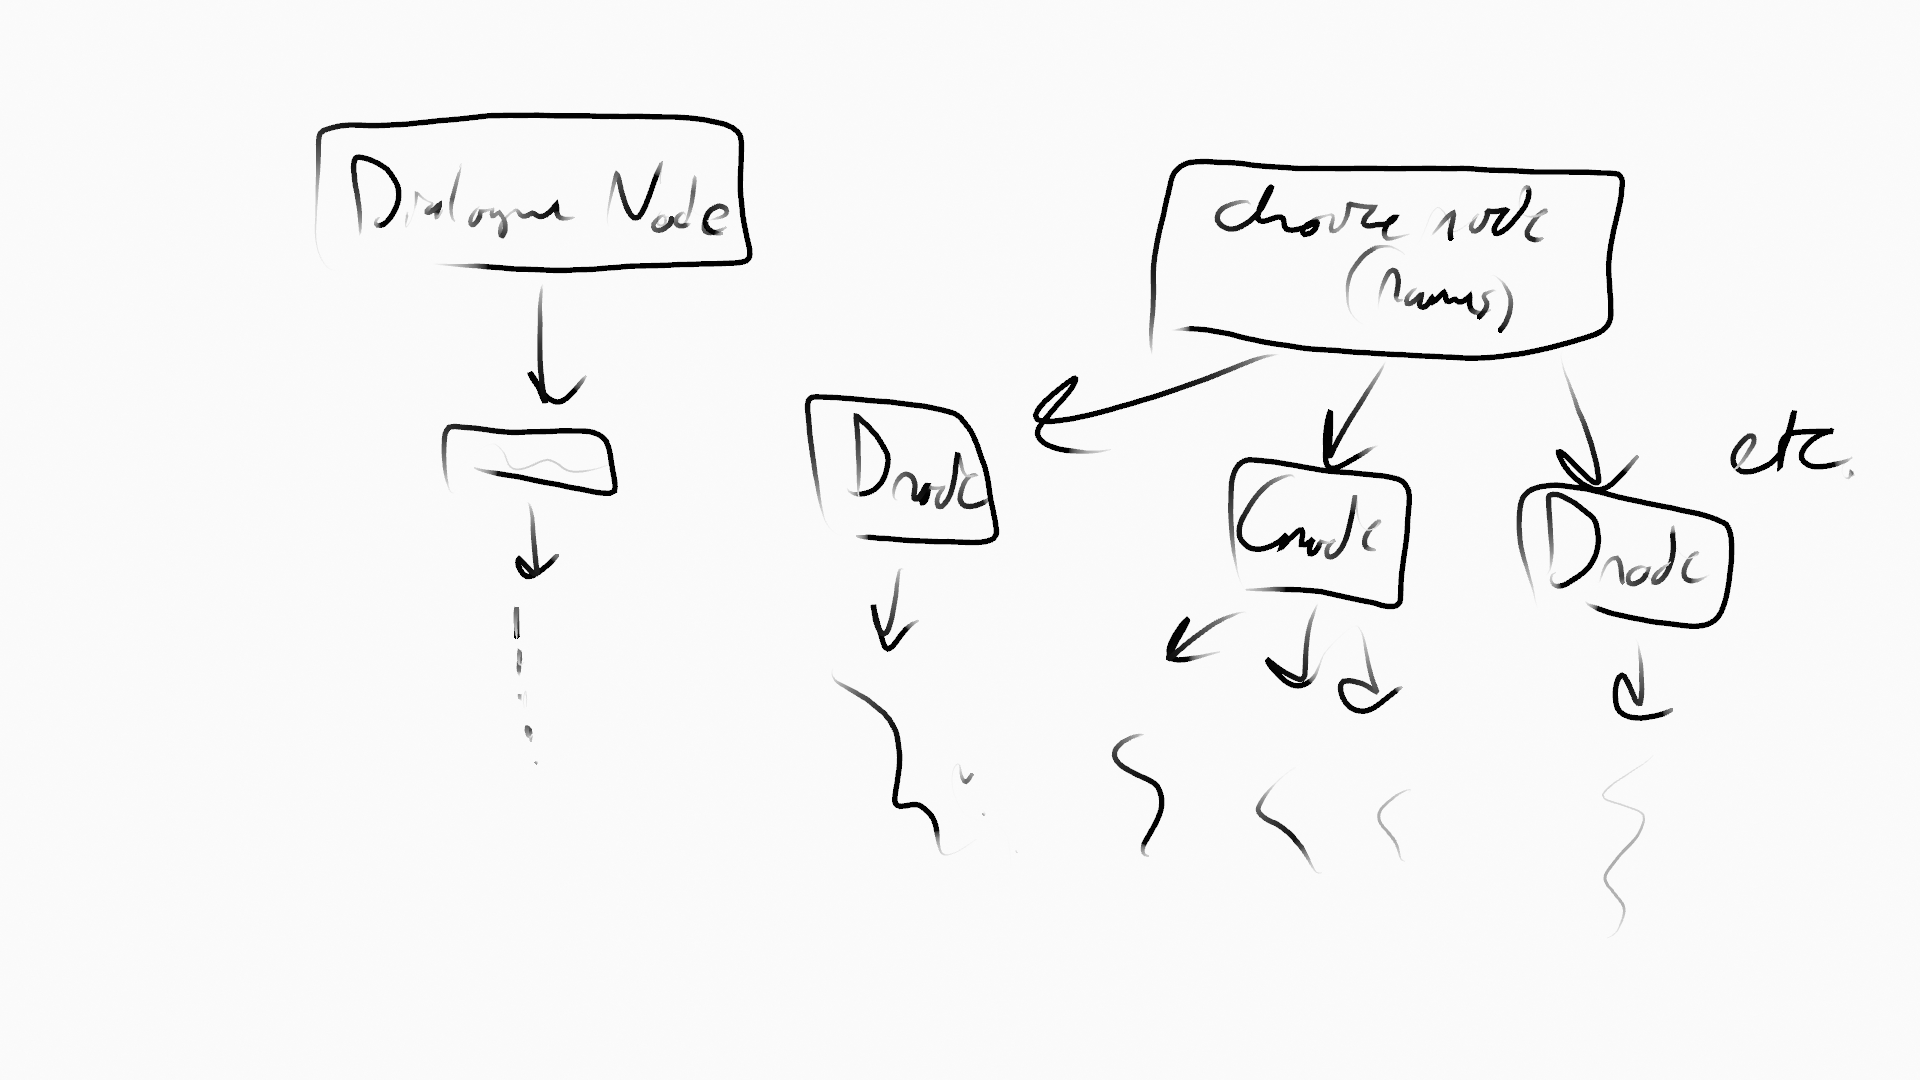 Dialogue Node
choose node
(names)
D node
C node
D node
etc.